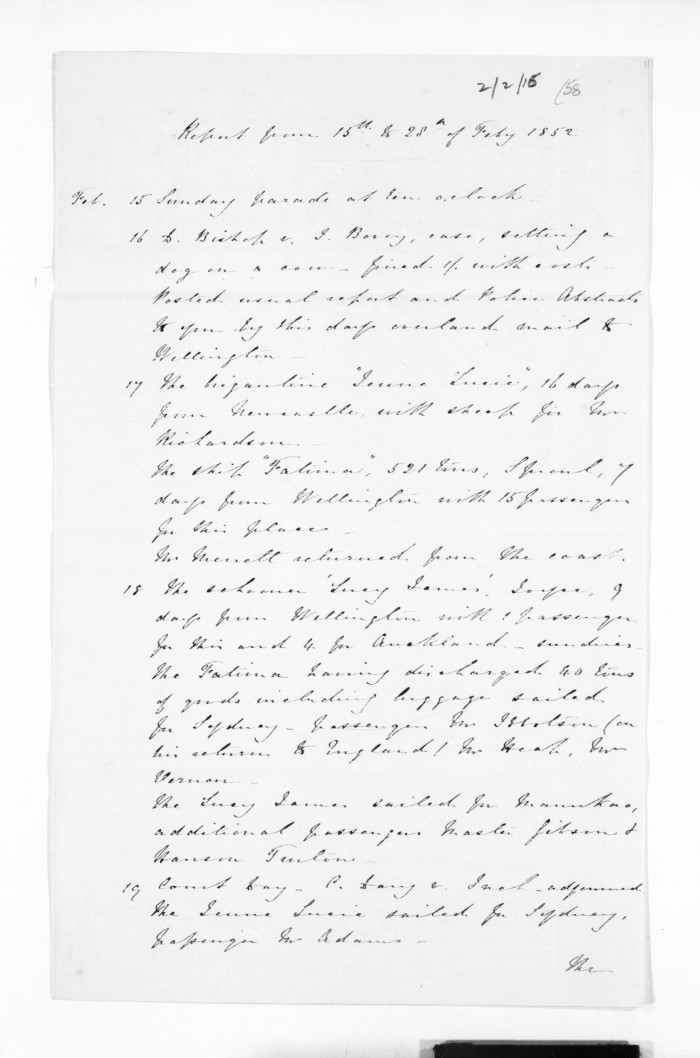 2/2/15 (58
Report from 15th to 28th of Feby 1852
Feb. 15 Sunday parade at ten o.clock
16 D. Bishop v. J. case, setting a
dog on a cow - fined 1/. with costs
Posted usual report and Police Abstracts
to you by this days overland mail to
Wellington -
17 The brigantine "Jeune Lucie", 16 days
from Newcastle with sheep for
Richardson -
The ship "Fatima", 521 tons, Sproul, 7
days from Wellington with 15 passengers
for this place -
Mr returned from the coast.
18 The schooner 'Lucy James', 9
days from Wellington with 1 passenger
for this and 4 for Auckland - sundries
The Fatima having discharged 40 tons
of goods including luggage sailed
for Sydney - passengers Mr Ibbotson (on
his return to England) Mr
Vernon -
The Lucy James sailed for Manukao,
additional passengers Master Gibson &
-
19 Court Day - C. v. - adjourned
The Jeune Lucie sailed for Sydney,
passenger Mr Adams -
The